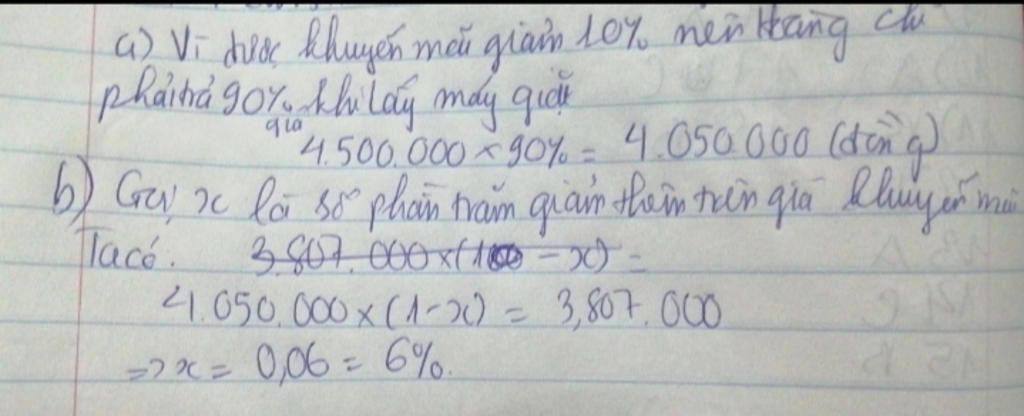 a) Vì được khuyến mãi giảm 10% nên Hằng chỉ
phải trả 90% khi lấy máy giặt
giá
4.500.000 × 90% = 4.050.000 (đồng)
b) Gọi x là số phần trăm giảm thêm trên giá khuyến mãi
Ta có. 3.807.000×(100 - x) =
4.050.000×(1-x) = 3,807.000
=> x = 0,06 = 6%.